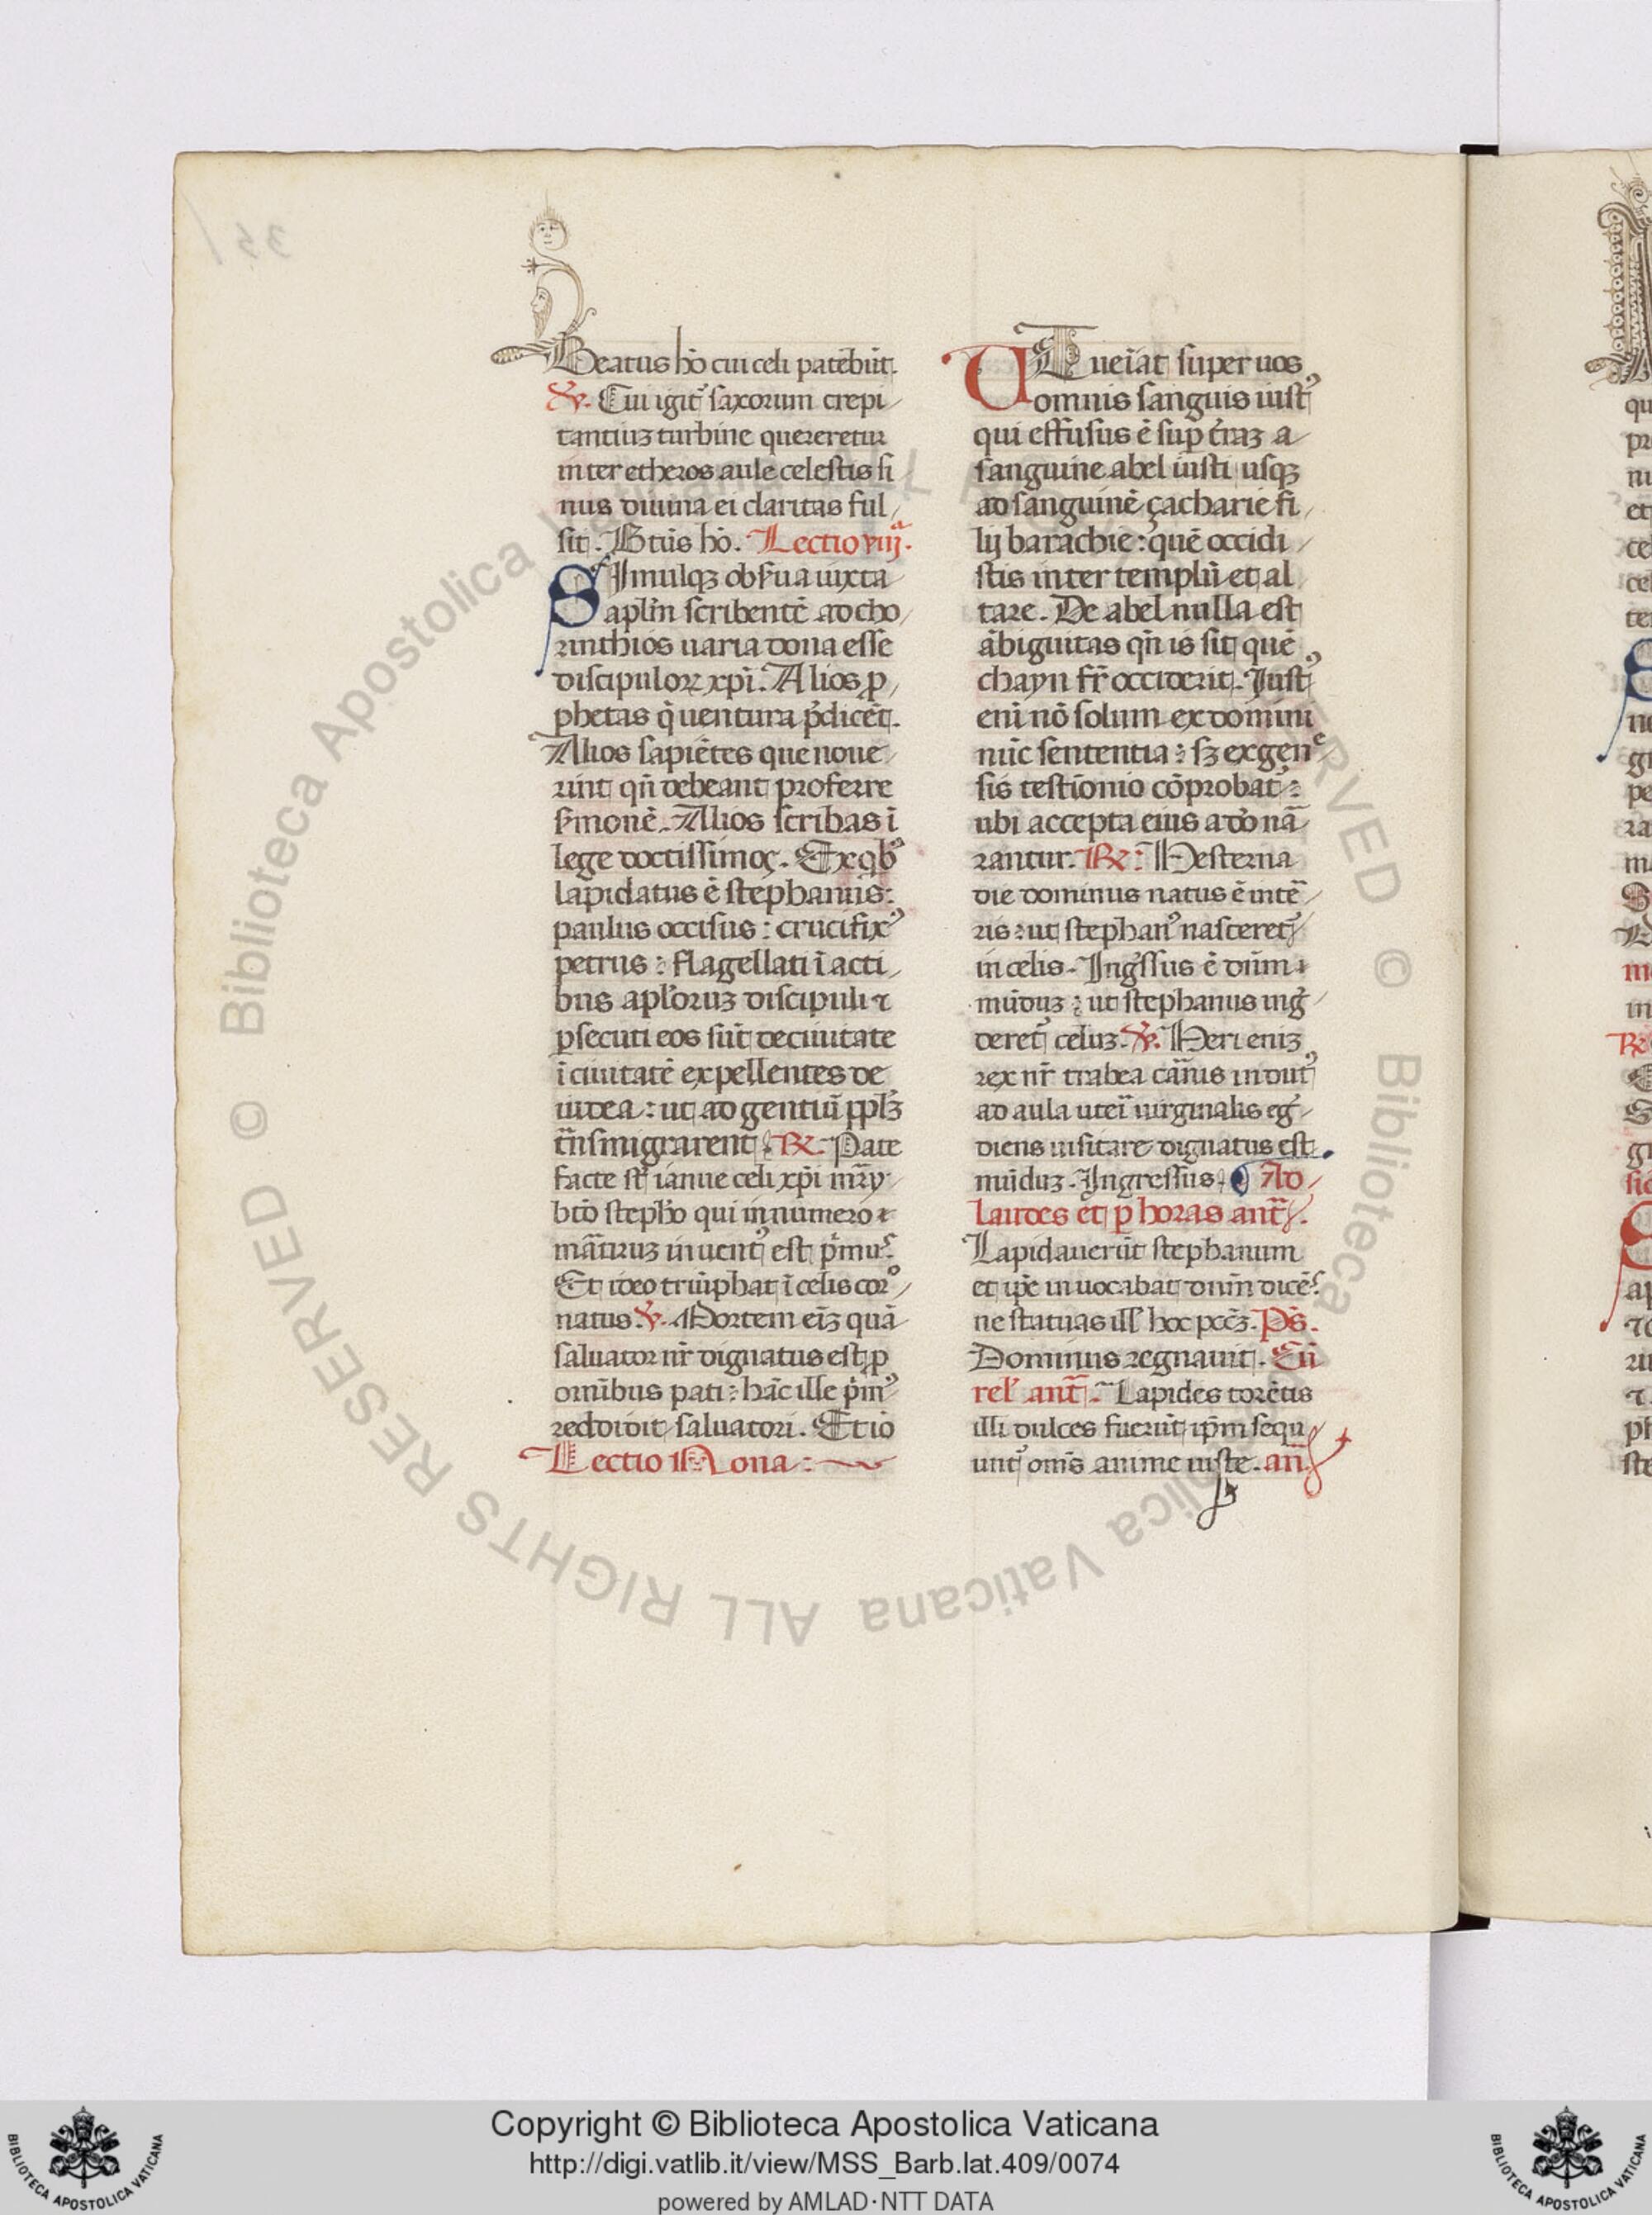 Beatus hō cui celi patēbūt.
℣. Cui igit᷑ saxorum crepi
tantiuꝫ turbine quereretur
inter etheros aule celestis si
nus diuina ei claritas ful
sit. Btūs hō. Lectio viijª.
SImulqꝫ obẜua iuxta
aplm̄ scribentē ad cho
rinthios uaria dona esse
discipuloꝝ xp̄i. Alios ꝓ
phetas q̇ uentura p̄dicēt.
Alios sapiētes que noue
rint qn̄ debeant proferre
ẜmonē. Alios scribas ī
lege doctissimoς. Ex qbꝰ
lapidatus ē stephanus:
paulus occisus: crucifixꝰ
petrus: flagellati ī acti
bus apl'oruꝫ discipuli ⁊
ꝑsecuti eos sūt de ciuitate
ī ciuitatē expellentes de
iudea: ut ad gentiū ppl'ꝫ
tn̄smigrarent ℟. Pate
facte st̄ ianue celi xp̄i mr̄y
btō steph̄o qui in numero
mr̄tiruꝫ inuentꝰ est p̄mus
Et ideo triūphat ī celis coroꝰ
natus. ℣. Mortem eīꝫ quā
saluator nr̄ dignatus est ꝓ
omībus pati: hāc ille p̄mꝰ
reddidit saluatori. Et iō
Lectio Nona:
UT ueīat super uos
omnis sanguis iustꝰ
qui effusus ē sup t̄raꝫ a
sanguine abel iusti usqꝫ
ad sanguinē çacharie fi
lij barachie: quē occidi
stis inter templū et al
tare. De abel nulla est
ābiguitas qn̄ is sit quē
chayn fr̄ occiderit. Justꝰ
enī nō solum ex domini
nūc sententia: sꝫ ex gene
sis testīonio cōprobat᷑:
ubi accepta eius a dō nā
rantur. ℟. Hesterna
die dominus natus ē in tē
ris: ut stephanꝰ nasceret᷑
in celis. Ingr̄ssus ē dūm
mūduꝫ: ut stephanus ingr̄
deret᷑ celuꝫ. ℣. Heri eniꝫ
rex nr̄ trabea carn̄is indutꝰ
ad aula uterī uirginalis egr̄
diens uisitare dignatus est
mūduꝫ. Ingressus. Ad
laudes et p̱ horas ant̄.
Lapidauerūt stephanum
et ip̄e inuocabat dnīm dicēs
ne statuas ill' hoc pccꝫ. Ps̄.
Dominus regnauit. Cū
rel' ant̄. Lapides torētis
illi dulces fuerūt ip̄m sequ
unt᷑ om̄s anime iuste. an̄
Copyright © Biblioteca Apostolica Vaticana
http://digi.vatlib.it/view/MSS_Barb.lat.409/0074
powered by AMLAD·NTT DATA
BIBLIOTECA APOSTOLICA VATICANA
BIBLIOTECA APOSTOLICA VATICANA
© Biblioteca Apostolica Vaticana ALL RIGHTS RESERVED © Biblioteca Apostolica Vaticana ALL RIGHTS RESERVED